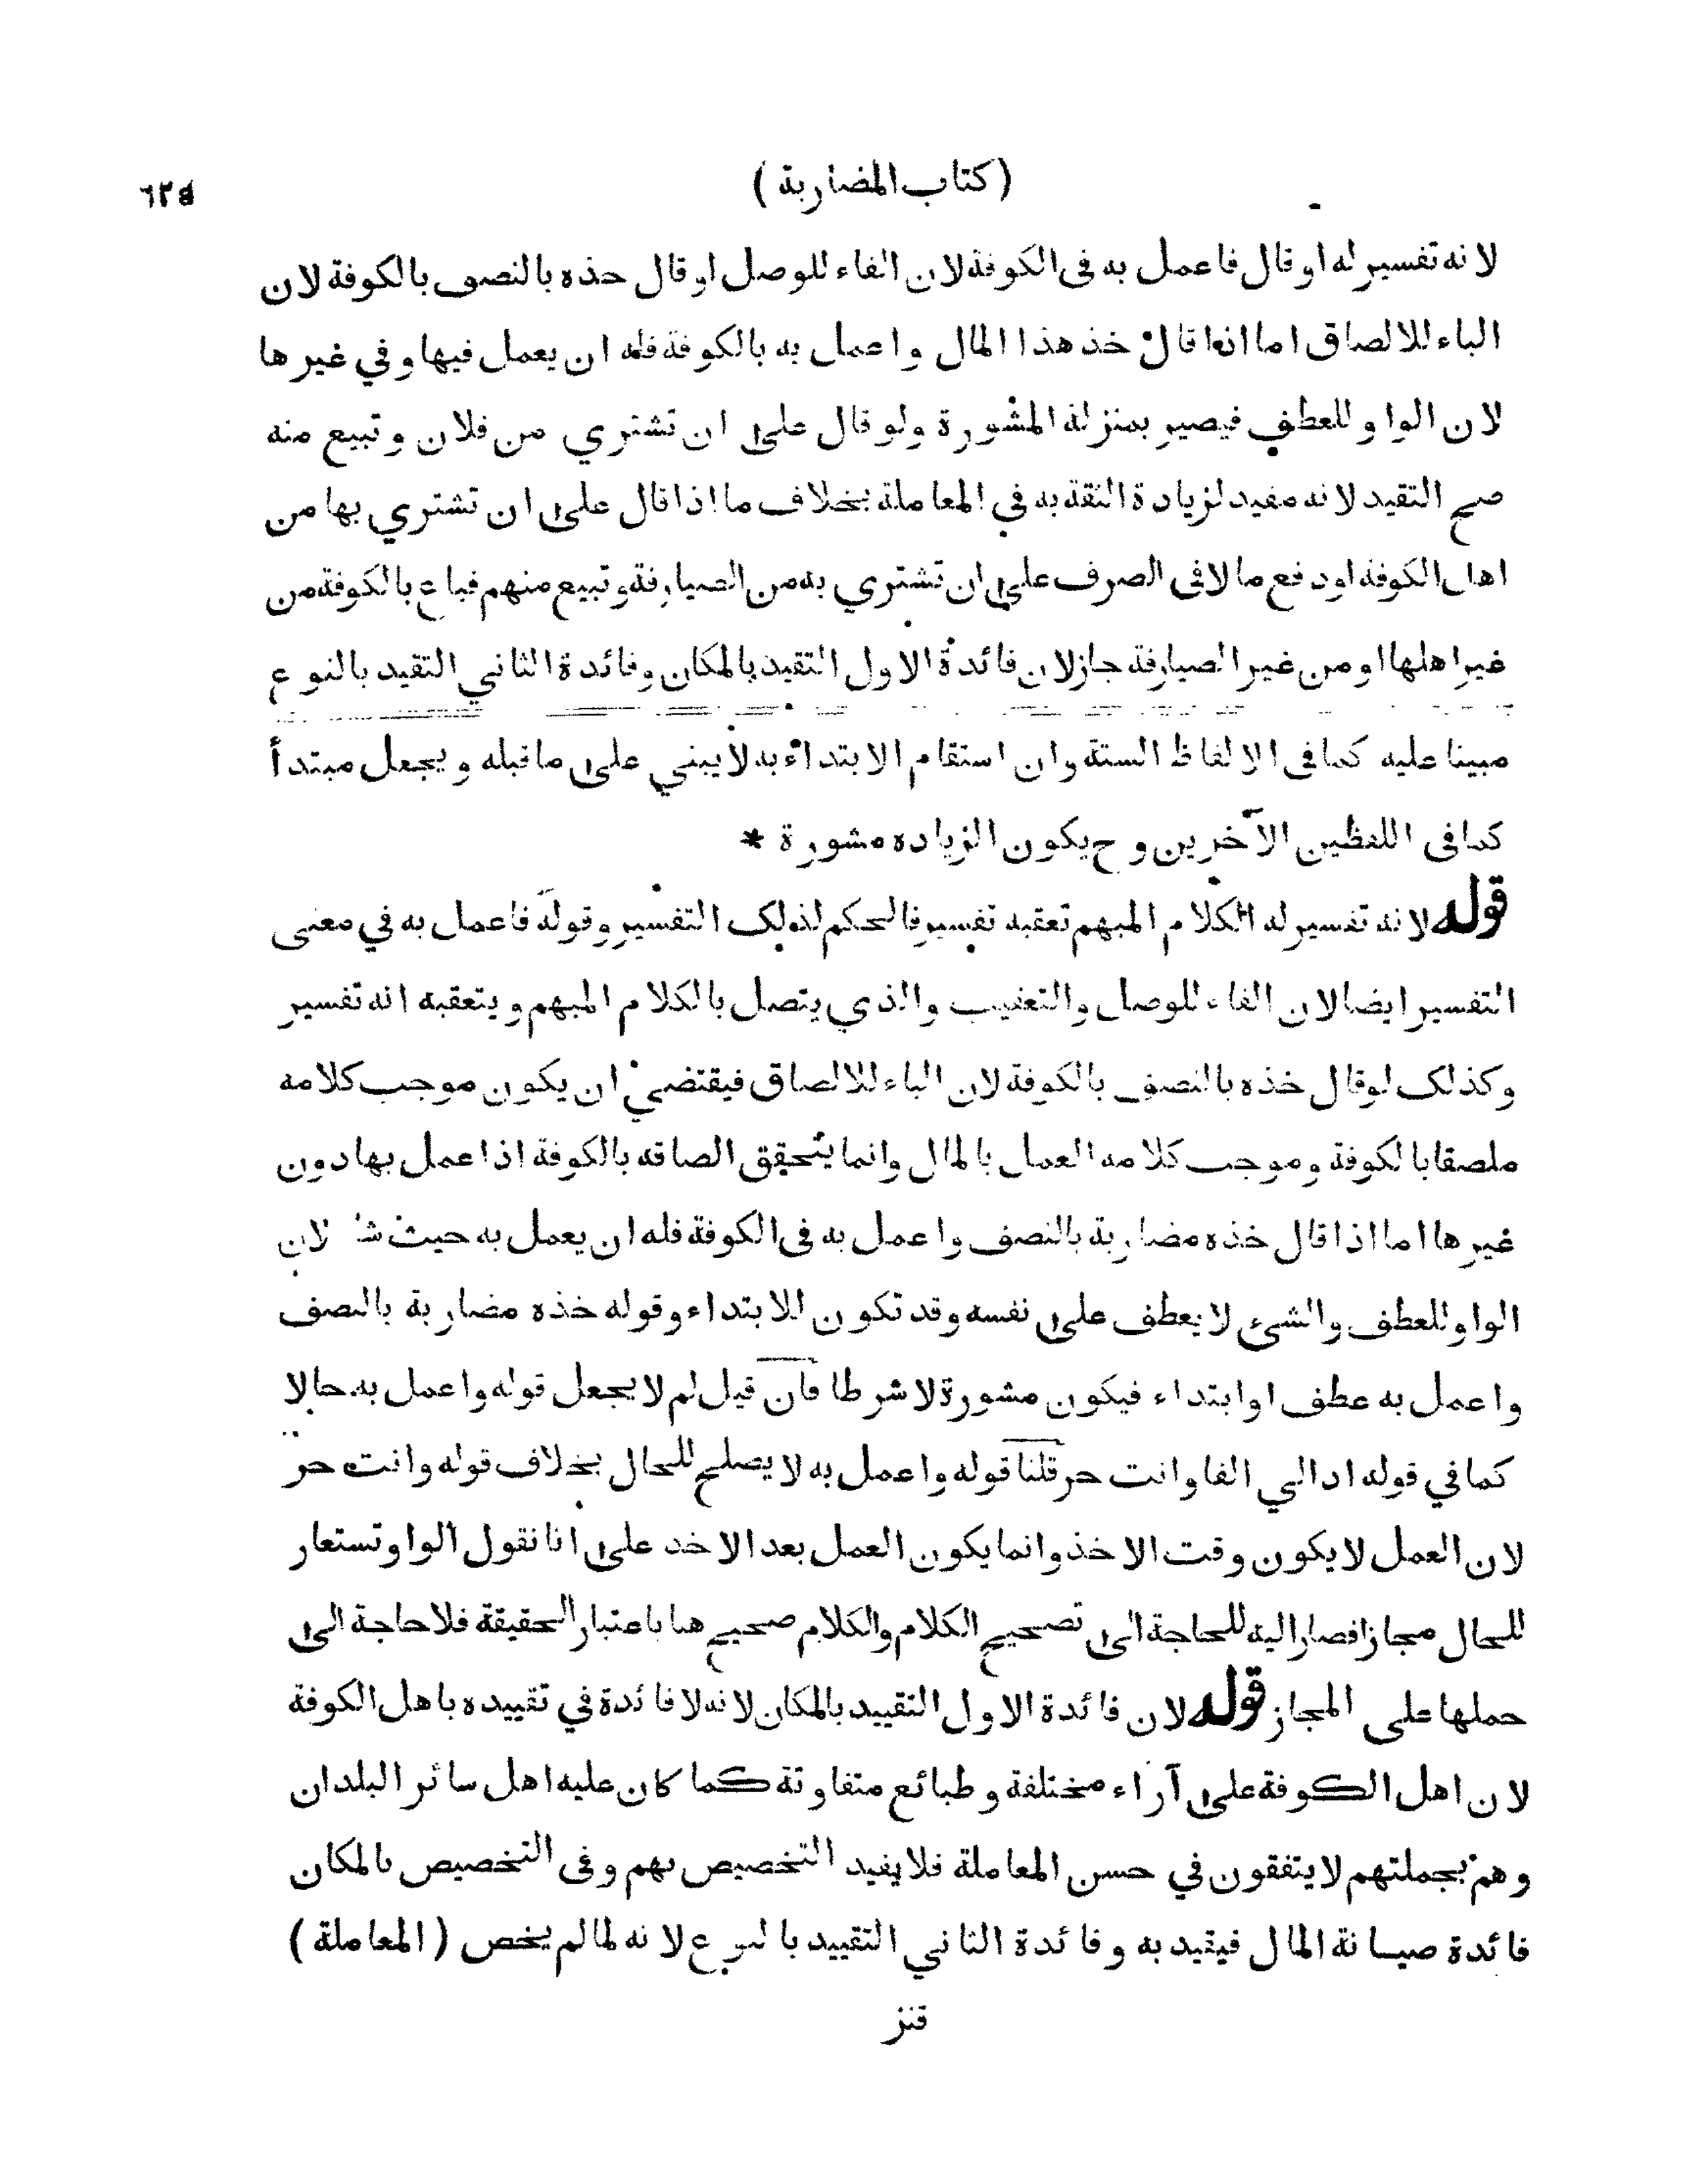 (كتاب المضاربة)
لانه تفسير له او قال فاعمل به فى الكوفة لان الفاء للوصل او قال خذه بالنصف بالكوفة لان
الباء للالصاق اما اذا قال خذ هذا المال واعمل به بالكوفة فله ان يعمل فيها وفي غيرها
لان الواو للعطف فيصير بمنزلة المشورة ولو قال على ان تشتري من فلان وتبيع منه
صح التقيد لانه مفيد لزيادة الثقة به في المعاملة بخلاف ما اذا قال على ان تشتري بها من
اهل الكوفة او دفع مالا فى الصرف على ان تشتري به من الصيارفة وتبيع منهم فباع بالكوفة من
غير اهلها او من غير الصيارفة جاز لان فائدة الاول التقيد بالمكان وفائدة الثاني التقيد بالنوع
مبينا عليه كما فى الالفاظ الستة وان استقام الابتداء به لا يبني على ما قبله ويجعل مبتدأ
كما فى اللفظين الآخرين وح يكون الزياده مشورة *
قوله لانه تفسير له الكلام المبهم تعقبه تفسير فالحكم لذلك التفسير وقوله فاعمل به في معنى
التفسير ايضا لان الفاء للوصل والتعقيب والذي يتصل بالكلام المبهم ويتعقبه انه تفسير
وكذلك لو قال خذه بالنصف بالكوفة لان الباء للالصاق فيقتضي ان يكون موجب كلامه
ملصقا بالكوفة وموجب كلامه العمل بالمال وانما يتحقق الصاقه بالكوفة اذا عمل بها دون
غيرها اما اذا قال خذه مضاربة بالنصف واعمل به فى الكوفة فله ان يعمل به حيث شا لان
الواو للعطف والشئ لا يعطف على نفسه وقد تكون للابتداء وقوله خذه مضاربة بالنصف
واعمل به عطف او ابتداء فيكون مشورة لا شرطا فان قيل لم لا يجعل قوله واعمل به حالا
كما في قوله اد الي الفا وانت حر قلنا قوله واعمل به لا يصلح للحال بخلاف قوله وانت حر
لان العمل لا يكون وقت الاخذ وانما يكون العمل بعد الاخذ على انا نقول الواو تستعار
للحال مجازا فصار اليه للحاجة الى تصحيح الكلام والكلام صحيح هنا باعتبار الحقيقة فلا حاجة الى
حملها على المجاز قوله لان فائدة الاول التقييد بالمكان لانه لا فائدة في تقييده باهل الكوفة
لان اهل الكوفة على آراء مختلفة وطبائع متفاوتة كما كان عليه اهل سائر البلدان
وهم بجملتهم لا يتفقون في حسن المعاملة فلا يفيد التخصيص بهم وفى التخصيص بالمكان
فائدة صيانة المال فيقيد به وفائدة الثاني التقييد بالنوع لانه لما لم يخص (المعاملة)